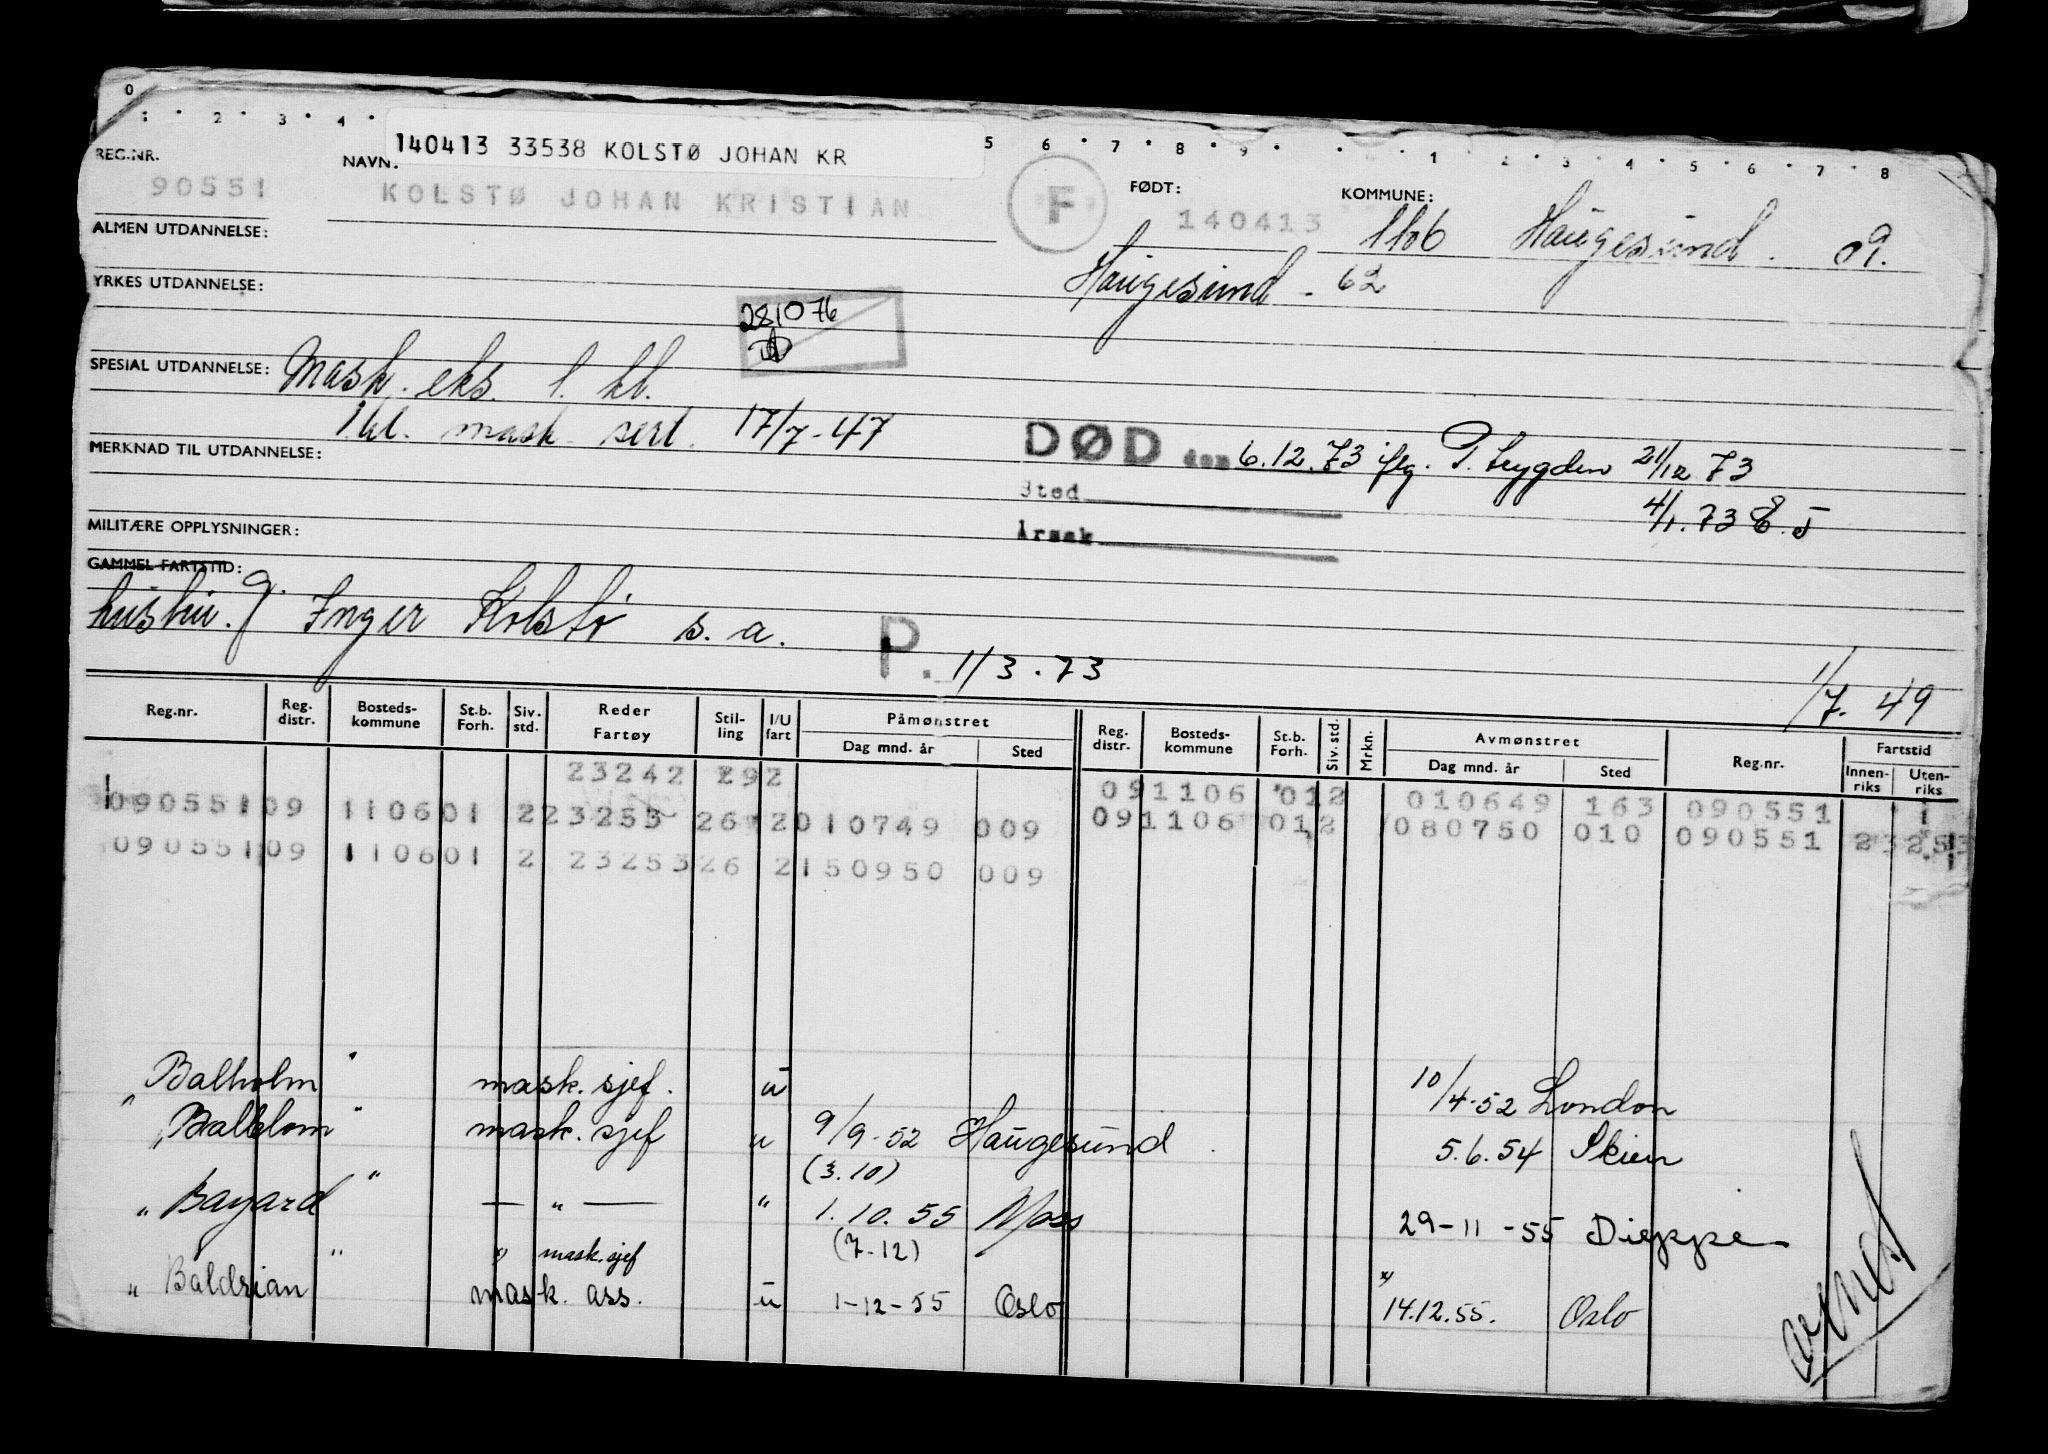 0 1 2 3 4 5 6 7 8 9 1 2 3 4 5 6 7 8
140413 33538 KOLSTØ JOHAN KR
REG.NR. NAVN: FØDT: KOMMUNE:
90551 KOLSTØ JOHAN KRISTIAN F 140413 1106 Haugesund. 09.
ALMEN UTDANNELSE:
Haugesund - 62
YRKES UTDANNELSE:
281076
SPESIAL UTDANNELSE: Mask. eks. 1. kl.
1 kl. mask. sert. 17/7-47
MERKNAD TIL UTDANNELSE:
DØD den 6.12.73 iflg. P. trygden 21/12 73
Sted
4/1.73 E.J
MILITÆRE OPPLYSNINGER:
Årsak
GAMMEL FARTSTID:
hustru. g. Inger Kolstø s.a.
P. 1/3.73
1/7-49
Reg.nr. Reg. distr. Bosteds-kommune St.b. Forh. Siv. std. Reder Fartøy Stil-ling I/U fart Påmønstret Dag mnd. år Sted Reg. distr. Bosteds-kommune St.b. Forh. Siv. std. Mrkn. Avmønstret Dag mnd. år Sted Reg.nr. Fartstid Innen-riks Uten-riks
23242 292 091106 012 010649 163 090551
090551 09 1106 01 2 23253 26 2 010749 009 091106 012 080750 010 090551
090551 09 1106 01 2 23253 26 2 150950 009
Balholm " mask. sjef. u 10/4-52 London
" Balblom " mask. sjef u 9/9-52 Haugesund 5.6.54 Skien
(3.10)
" Bayard " — " — " 1.10.55 Moss 29-11-55 Dieppe
(7-12)
x) mask.sjef
" Baldrian " mask. ass. u 1-12-55 Oslo x) 14.12.55. Oslo